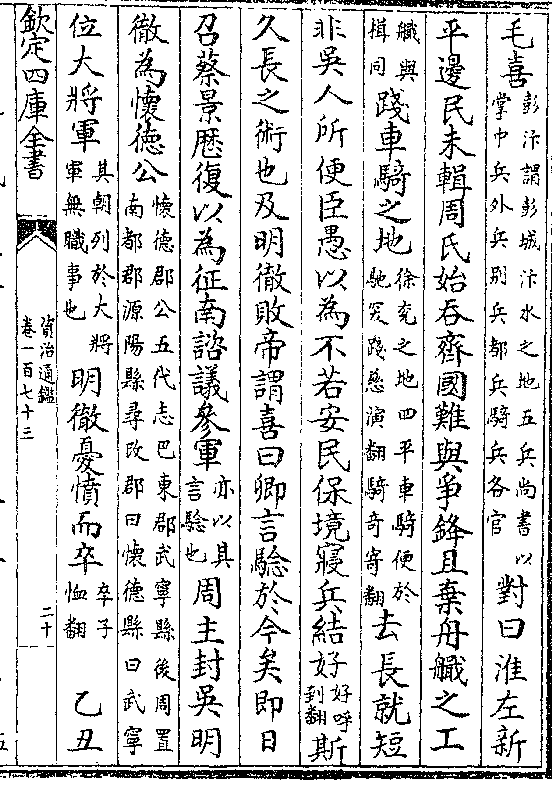 毛喜彭汴謂彭城汴水之地五兵尚書以掌中兵外兵別兵都兵騎兵各官對曰淮左新
平邊民未輯周氏始吞齊國難與爭鋒且棄舟艥之工
艥與楫同踐車騎之地徐兗之地四平車騎便於馳突踐慈演翻騎奇寄翻去長就短
非吳人所便臣愚以為不若安民保境寢兵結好好呼到翻斯
久長之術也及明徹敗帝謂喜曰卿言驗於今矣即日
召蔡景歴復以為征南諮議參軍亦以其言驗也周主封吳明
徹為懷德公懷德郡公五代志巴東郡武寧縣後周置南都郡源陽縣尋改郡曰懷德縣曰武寧
位大將軍其朝列於大將軍無職事也明徹憂憤而卒卒子恤翻乙丑
欽定四庫全書
資治通鑑
卷一百七十三
二十